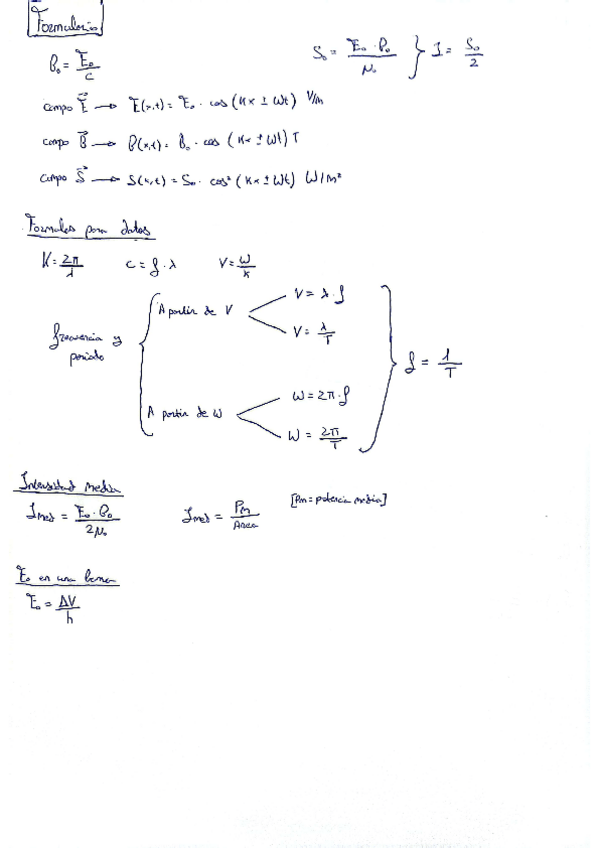 Formulario
B₀ = E₀/c
S₀ = E₀·B₀/μ₀ } I = S₀/2
campo E⃗ → E(x,t) = E₀ · cos(Kx ± ωt) V/m
campo B⃗ → B(x,t) = B₀ · cos (Kx ± ωt) T
campo S⃗ → S(x,t) = S₀ · cos² (Kx ± ωt) W/m²
Formulas para datos
K = 2π/λ c = f·λ V = ω/k
frecuencia y periodo
A partir de V
V = λ·f
V = λ/T
A partir de ω
ω = 2π·f
ω = 2π/T
f = 1/T
Intensidad media
Imed = E₀·B₀/2μ₀ Imed = Pm/Area [Pm = potencia media]
E₀ en una
E₀ = ΔV/h